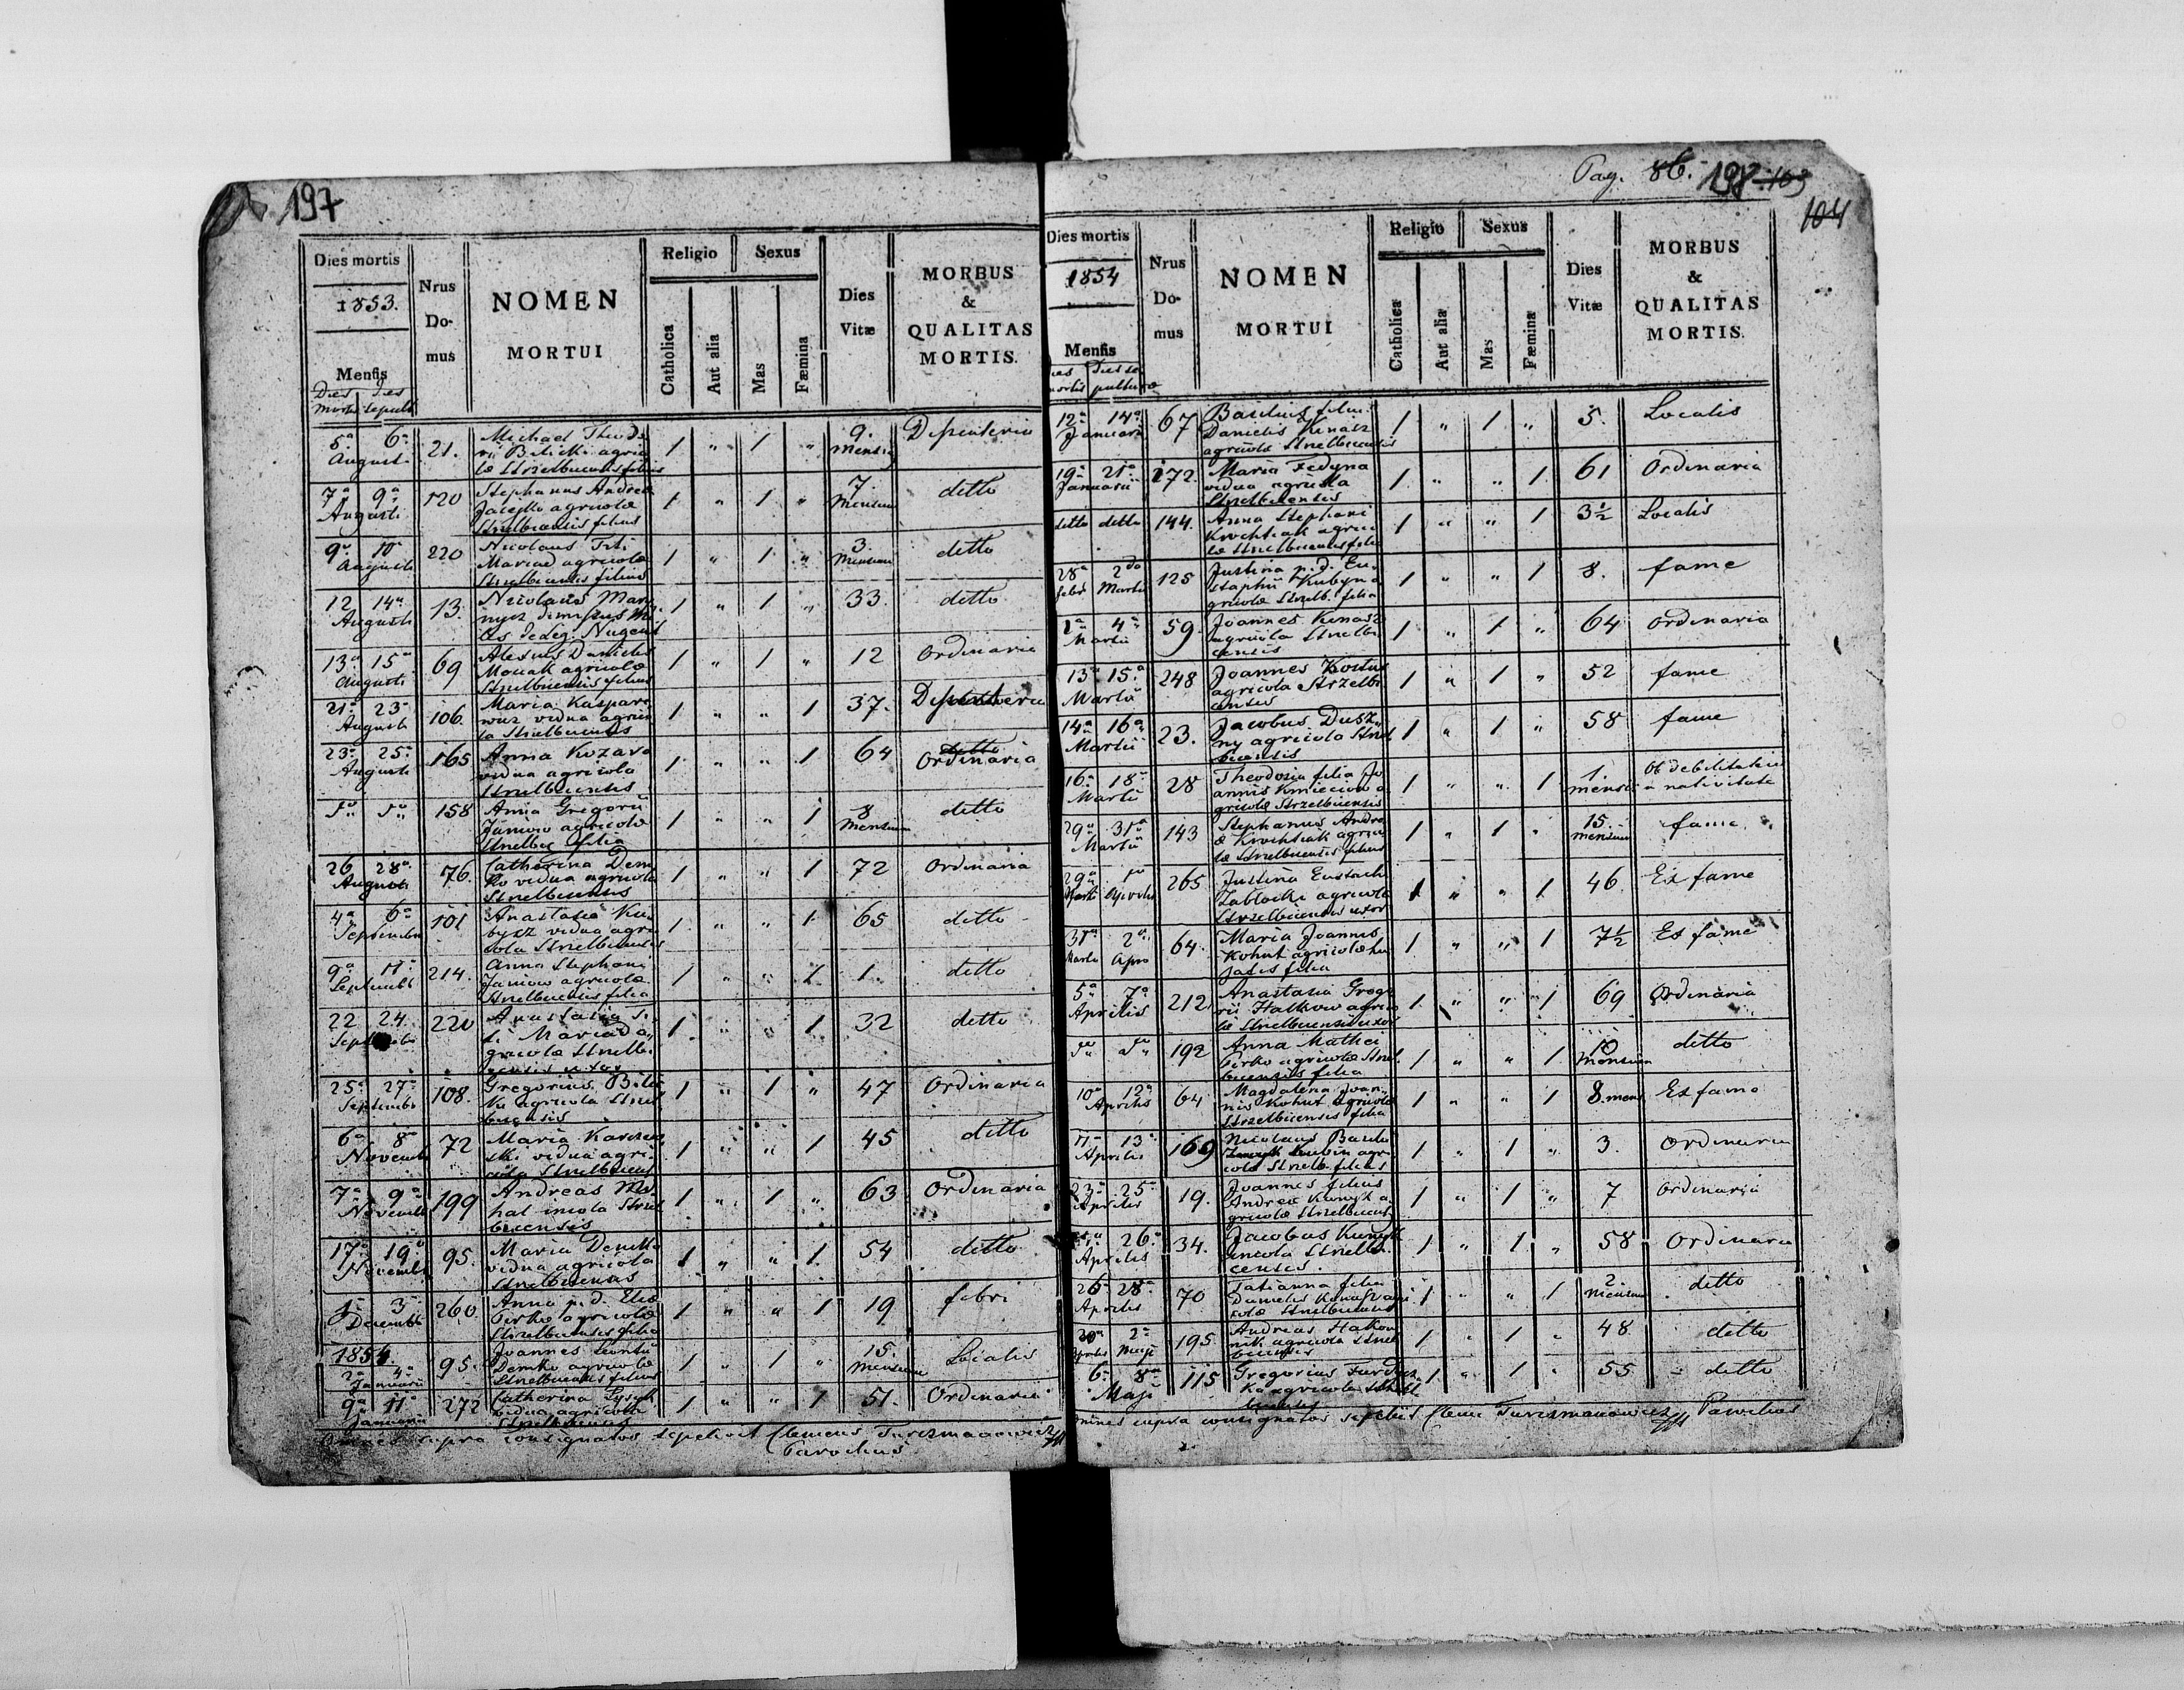 197
Dies mortis
1853.
Mensis
Dies mortis
Dies sepult.
Nrus Domus
NOMEN
MORTUI
Religio
Catholica
Aut alia
Sexus
Mas
Fæmina
Dies Vitæ
MORBUS
&
QUALITAS
MORTIS.
5a 6a Augusti 21. Michael Theodo
rii Bilicki agrico
læ Strzelbicensis filius 1 " 1 " 9. Mensiu Dysenteria
7a 9a Augusti 120 Stephanus Andreæ
Jacejko agricolæ
Strzelbicensis filius 1 " 1 " 7 Mensium ditto
9a 10a Augusti 220 Nicolaus Titi
Mariad agricolæ
Strzelbicensis filius 1 " 1 " 3. Mensium ditto
12 14a Augusti 13. Nicolaus Mary
nycz dimissus Mi
les de Leg. Nugent 1 " 1 " 33. ditto
13a 15a Augusti 69 Alexius Danielis
Monak agricolæ
Strzelbicensis filius 1 " 1 " 12 Ordinaria
21a 23a Augusti 106. Maria Kaspare
wicz vidua agrico
la Strzelbicensis 1 " " 1 37.
23a 25a Augusti 165 Anna Kozar
vidua agricola
Strzelbicensis 1 " " 1 64 ditto
Ordinaria
158 Anna Gregorii
Janiow agricolæ
Strzelbic filia 1 " " 1 8 Mensium ditto
26 28a Augusti 76. Catharina Dem
ko vidua agricola
Strzelbicensis 1 " " 1 72 Ordinaria
4a 6a Septembr 101 Anastasia Ku
bycz vidua agri
cola Strzelbicensis 1 " " 1 65 ditto
9a 11a Septembr 214. Anna Stephani
Janiow agricolæ
Strzelbicensis filia 1 " " 1 1. ditto
22 24 220 Anastasia
Mariad a
gricolæ Strzelbi
censis uxor 1 " " 1 32 ditto
25a 27a Septembr 108. Gregorius Bilic
ki agricola Strzel
bicensis 1 " 1 " 47 Ordinaria
6a 8a Novembr 72 Maria
ski vidua agri
cola Strzelbicens 1 " " 1 45 ditto
7a 9a Novembr 199 Andreas
hal incola Strzel
bicensis 1 " 1 " 63 Ordinaria
17a 19a Novembr 95. Maria Demko
vidua agricola
Strzelbicensis 1 " " 1 54 ditto
1a 3a Decembr 260. Anna p. d. Eliæ
Pirko agricolæ
Strzelbicensis filia 1 " " 1 19 febri
1854.
2a 4a Januarii 95. Joannes Leontii
Demko agricolæ
Strzelbicensis filius 1 " 1 " 15. Mensium Localis
9a 11a Januarii 272 Catherina Lysyk
vidua agricola
Strzelbicensis 1 " " 1 51. Ordinaria
Omnes supra consignatos sepelivit Clemens Turczmanowicz
Parochus
Pag. 86. 198 103
104
Dies mortis
1854
Mensis
Dies mortis
Dies se
pulturæ
Nrus Domus
NOMEN
MORTUI
Religio
Catholica
Aut alia
Sexus
Mas
Fæmina
Dies Vitæ
MORBUS
&
QUALITAS
MORTIS.
12a 14a Januarii 67 Basilius filius
Danielis Kinasz
agricolæ Strzelbicensis 1 " 1 " 5. Localis
19a 21a Januarii 172. Maria Fedyna
vidua agricola
Strzelbicensis 1 " " 1 61 Ordinaria
ditto ditto 144. Anna Stephani
Krochtiak agrico
læ Strzelbicensis filia 1 " " 1 3½ Localis
28a 2da Febr Martii 125 Justina p. d. Eu
staphii Kubyn a
gricolæ Strzelb. filia 1 " " 1 8. fame
4a Martii 59. Joannes Konasz
agricola Strzelbi
censis 1 " 1 " 64 Ordinaria
13a 15a Martii 248 Joannes Kostus
agricola Strzelbi
censis 1 " 1 " 52 fame
14a 16a Martii 23. Jacobus Dusz
ny agricola Strzel
bicensis 1 " 1 " 58 fame
16a 18a Martii 28 Theodosia filia Jo
annis Kmieciow a
gricolæ Strzelbicensis 1 " " 1 1. mensis Ob debilitatem
a nativitate
29a 31a Martii 143 Stephanus Andre
æ Krochtiak agrico
læ Strzelbicensis filius 1 " 1 " 15. mensium fame.
29a Marti Aprilis 265 Justina Eustach
Zablocki agricolæ
Strzelbicensis uxor 1 " " 1 46 Ex fame
31a 2a Martii Apr 64. Maria Joannis
Kohut agricolæ hu
jatis filia 1 " " 1 7½ Ex fame
5a 7a Aprilis 212. Anastasia Grego
rii Hatkow agrico
læ Strzelbicensis uxor 1 " " 1 69 Ordinaria
192 Anna Mathei
Pirko agricolæ Strzel
bicensis filia 1 " " 1 10 Mensium ditto
10a 12a Aprilis 64 Magdalena Joan
nis Kohut agricolæ
Strzelbicensis filia 1 " " 1 8. mens Ex fame
11a 13a Aprilis 169 Nicolaus Basilii
agri
colæ Strzelb. filius 1 " 1 " 3. Ordinaria
23a 25a Aprilis 19. Joannes filius
Andreæ Kunyk a
gricolæ Strzelbicens 1 " 1 " 7 Ordinaria
26a Aprilis 34. Jacobus Kunyk
incola Strzelbi
censis. 1 " 1 " 58 Ordinaria
26a 28a Aprilis 70 Tatianna filia
Danielis Konasz agri
colæ Strzelbicensis 1 " " 1 2. Mensium ditto
30a 2a Aprilis Maji 195. Andreas Hakow
nik agricola Strzel
bicensis 1 " 1 " 48 ditto
6a 8a Maji 115 Gregorius Furdycz
ko agricola Strzel
bicensis 1 " 1 " 55 ditto
Omnes supra consignatos sepelivit Clem Turczmanowicz Parochus